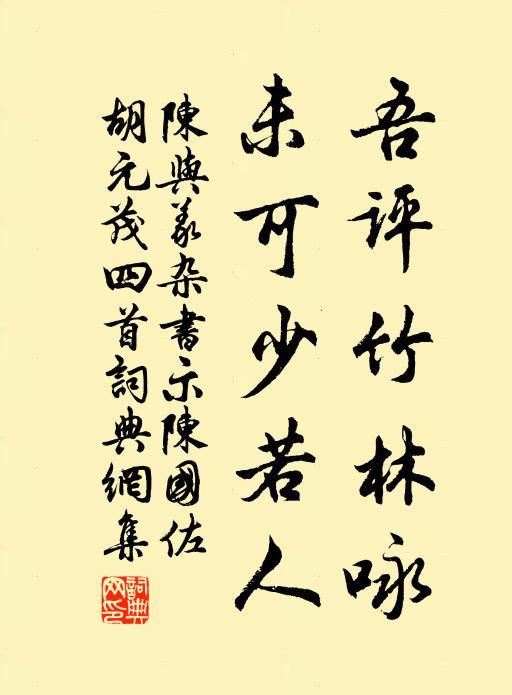 吾評竹林咏
未可少若人
陳與義杂書示陳國佐
胡元茂四首詞典網集
詞典網印